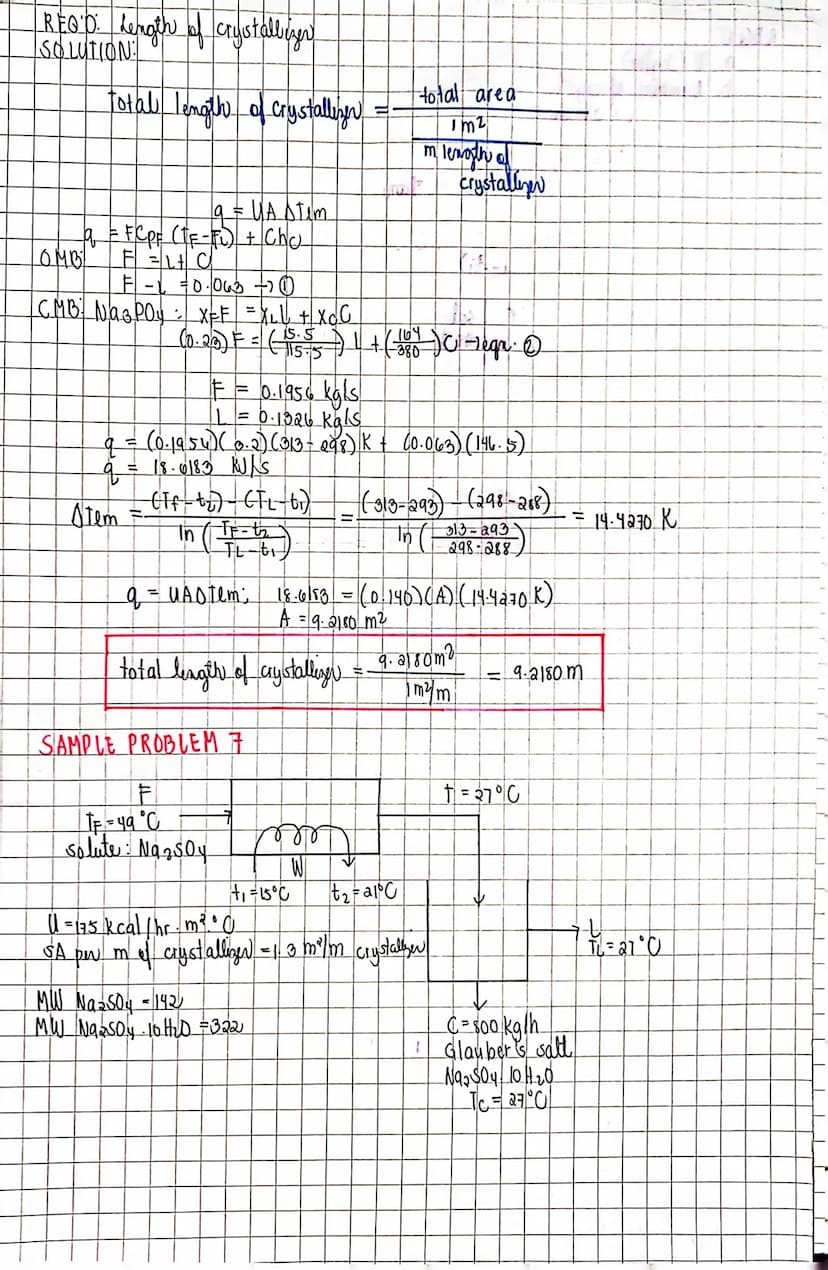 REQ'D: Length of crystallizer
SOLUTION:
Total length of crystallizer = total area
1 m²
m length of
crystallizer
q = UAΔTlm
q = FCpF (TF-TL) + Chc
OMB: F = L + C
F - L = 0.063 → ①
CMB: Na3PO4: XFF = XLL + XcC
(0.23) F = (15.5/115.5) L + (164/380) C → eqn. ②
F = 0.1956 kg/s
L = 0.1326 kg/s
q = (0.1954)(3.2)(313-298) K + (0.063)(146.5)
q = 18.6183 kJ/s
ΔTlm = (Tf-t2)-(TL-t1) / ln (TF-t2 / TL-t1) = (313-293)-(298-288) / ln (313-293 / 298-288) = 14.4270 K
q = UAΔTlm; 18.6183 = (0.140)(A)(14.4270 K)
A = 9.2180 m²
total length of crystallizer = 9.2180 m² / 1 m²/m = 9.2180 m
SAMPLE PROBLEM 7
F
TF = 49 °C
solute: Na2SO4
T = 27°C
W
t1 = 15°C t2 = 21°C
U = 175 kcal/hr·m²·°C
SA per m of crystallizer = 1.3 m²/m crystallizer
L
TL = 27°C
MW Na2SO4 = 142
MW Na2SO4·10H2O = 322
C = 800 kg/h
Glauber's salt
Na2SO4·10H2O
Tc = 27°C